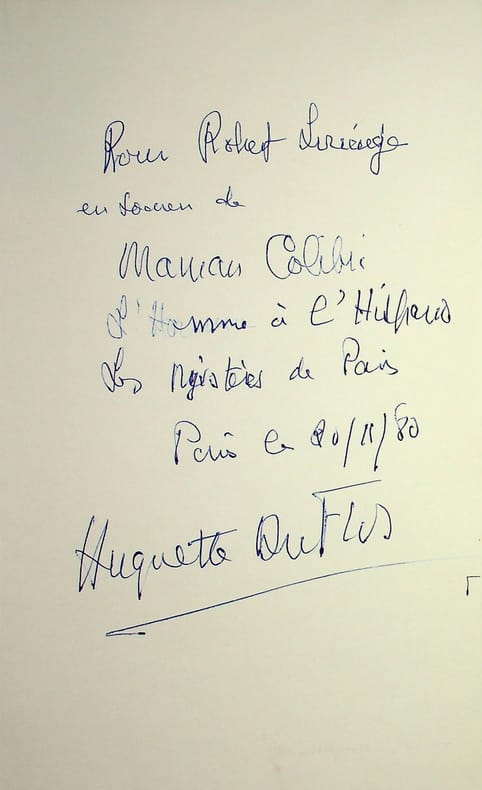 Pour Robert
en souvenir de
Maman Colibri
L'Homme à l'Hispano
Les Mystères de Paris
Paris le 20/11/80
Huguette Duflos